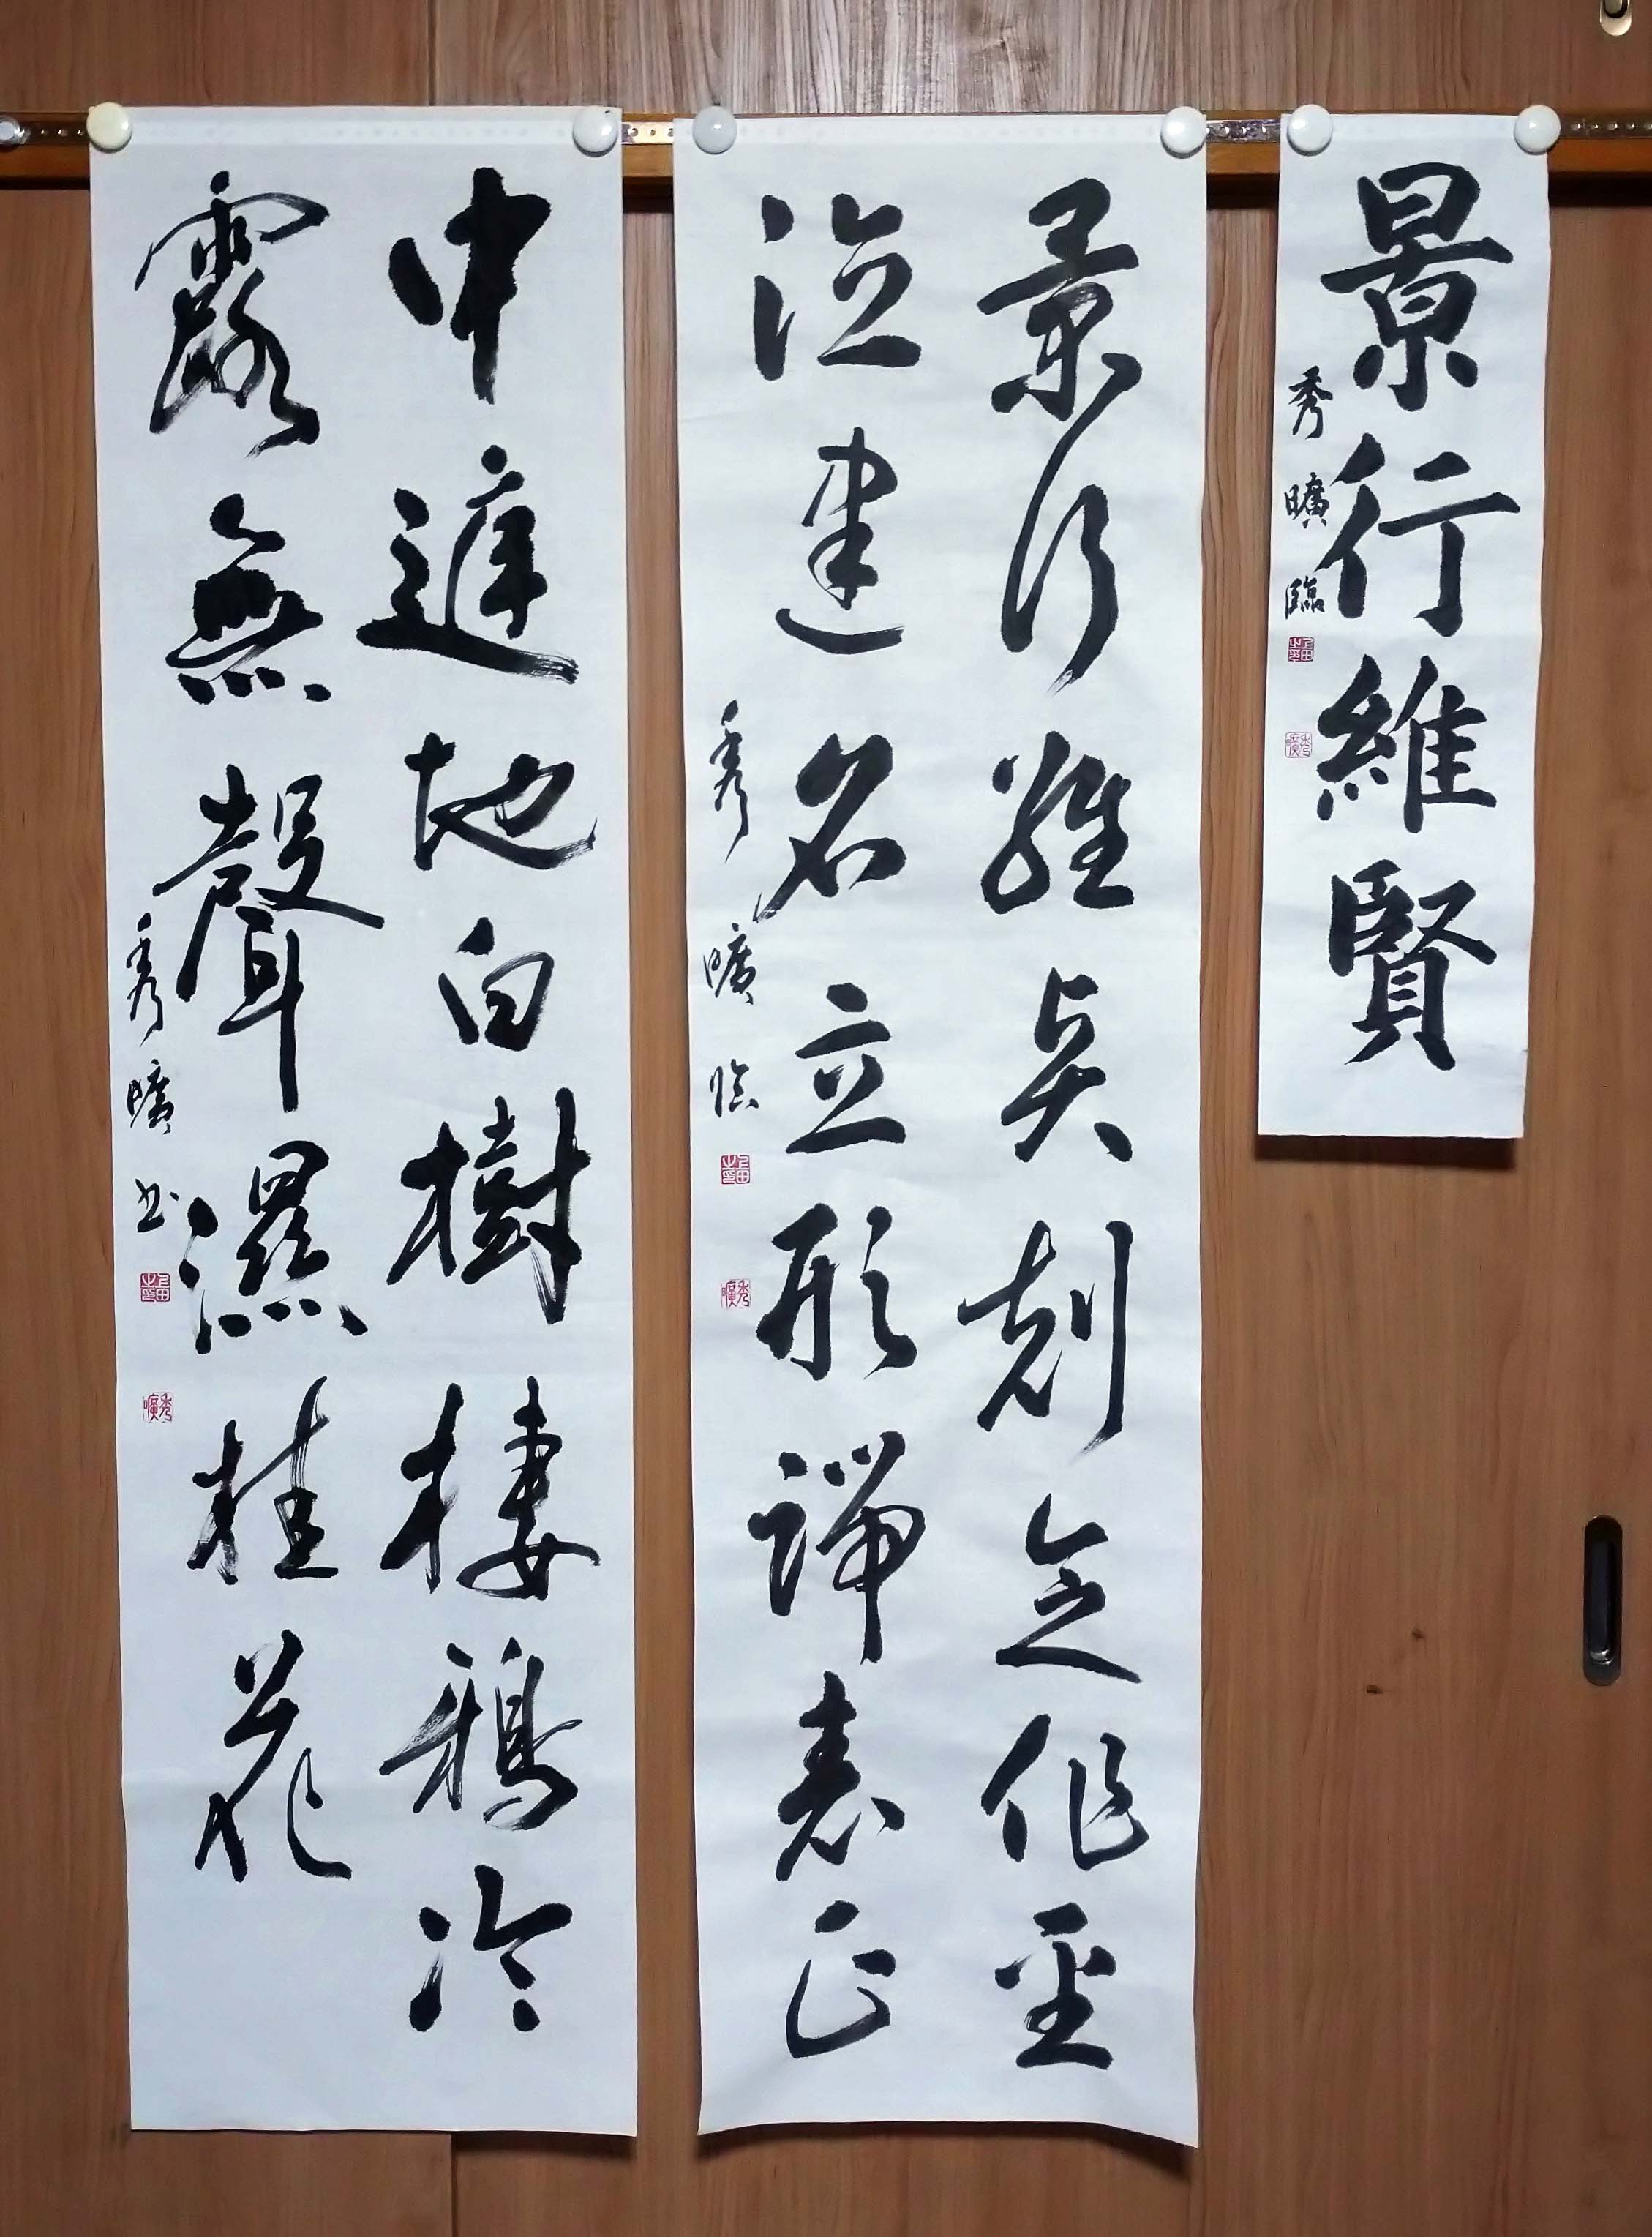 景行維賢
秀曠臨
秀曠
景行維賢剋念作聖
德建名立形端表正
秀曠臨
秀曠
中庭地白樹棲鴉冷
露無聲濕桂花
秀曠書
秀曠